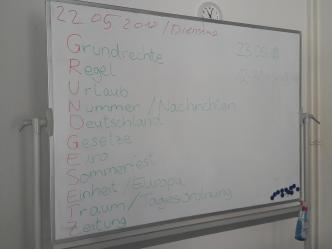 22.05.2012/Dienstag
Grundrechte
23.05.
Regel
Urlaub
Nummer/Nachrichten
Deutschland
Gesetze
Euro
Sommerfest
Einheit/Europa
Traum/Tagesordnung
Zeitung